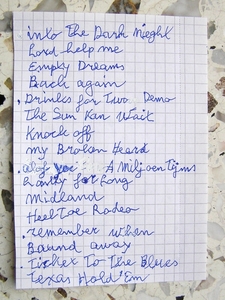 into The Dark Night
Lord help me
Empty Dreams
Back again
. Drinks for Two Demo
The Sun Kan Wait
Knock off
my Broken Heard
. A Miljoen Tijms
Lonly for Long
Midland
HeelToe Rodeo
. remember when
Bound away
. Ticket To The Blues
Texas Hold'Em